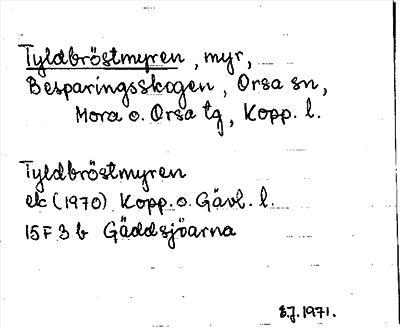 Tyldbröstmyren, myr,
Besparingsskogen, Orsa sn,
Mora o. Orsa tg, Kopp. l.
Tyldbröstmyren
ek (1970) Kopp. o. Gävl. l.
15F 3 b Gäddsjöarna
S.J. 1971.